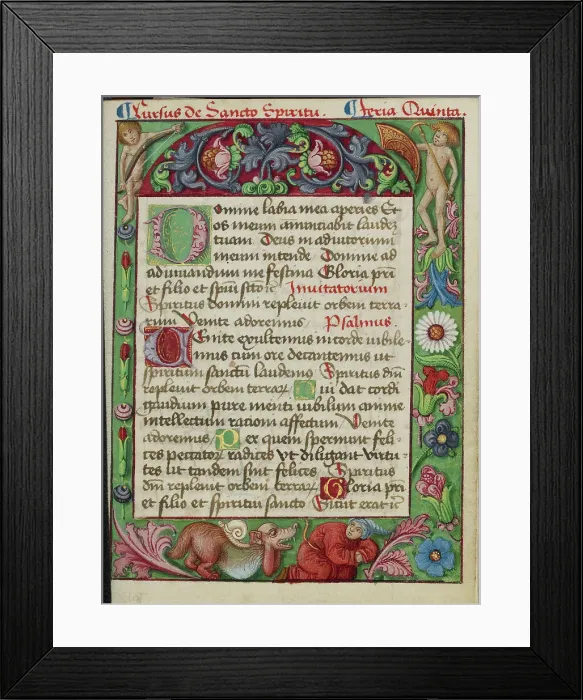 Cursus de Sancto Spiritu. Feria Quinta.
Domine labia mea aperies Et
os meum annunciabit laudem
tuam Deus in adiutorium
meum intende Domine ad
adiuuandum me festina Gloria pri
et filio et spui sto ic Inuitatorium
Spiritus domini repleuit orbem terra-
rum Venite adoremus Psalmus
Uenite exultemus in corde iubile-
mus cum ore decantemus ut
spiritum sanctum laudemus Spiritus dm
repleuit orbem terrar Qui dat cordi
gaudium pure menti iubilum anime
intellectum rationi affectum Venite
adoremus Per quem spernunt feli-
ces peccatorum radices Vt diligant virtu-
tes ut tandem sint felices Spiritus
dm repleuit orbem terrar Gloria pri
et filio et spiritui sancto Sicut erat ic